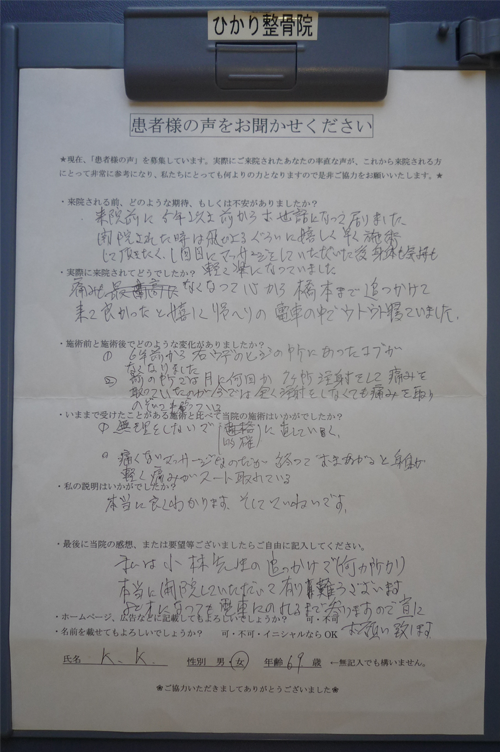 ひかり整骨院
患者様の声をお聞かせください
★現在、「患者様の声」を募集しています。実際にご来院されたあなたの率直な声が、これから来院される方
にとって非常に参考になり、私たちにとっても何よりの力となりますので是非ご協力をお願いいたします。★
・来院される前、どのような期待、もしくは不安がありましたか？
来院前に5年以上前からお世話になって居ります
開院された時は飛び上るぐらいに嬉しく早く施術
して頂きたく、1回目にマッサージをしていただいた後身体も気持も
・実際に来院されてどうでしたか？ 軽く楽になっていました
痛みも なくなって 心から橋本まで追っかけて
来て良かったと嬉しく帰へりの電車の中でウトウト寝ていました。
・施術前と施術後でどのような変化がありましたか？
① 6年前から右ウデの の所にあったコブが
なくなりました
② 前の所では月に何回か 注射をして痛みを
取っていたのが今では全く注射をしなくても痛みを取り

・いままで受けたことがある施術と比べて当院の施術はいかがでしたか？
① 無理をしないで 適格 的確 に直していく。
② 痛くないマッサージなのだが 終っておきあがると身体が
軽く痛みがスート取れている
・私の説明はいかがでしたか？
本当に良くわかります。そしてていねいです。
・最後に当院の感想、または要望等ございましたらご自由に記入してください。
私は小林先生の追っかけで(何ヵ所かり)
本当に開院していただいて有り難うございます
になっても電車にのれるまで参りますので宜に
・ホームページ、広告などに記載してもよろしいでしょうか？ 可・不可
・名前を載せてもよろしいでしょうか？ 可・不可・イニシャルならOK お願い致します
氏名 K.K. 性別 男・女 年齢 69 歳 ←無記入でも構いません。
★ご協力いただきましてありがとうございました★